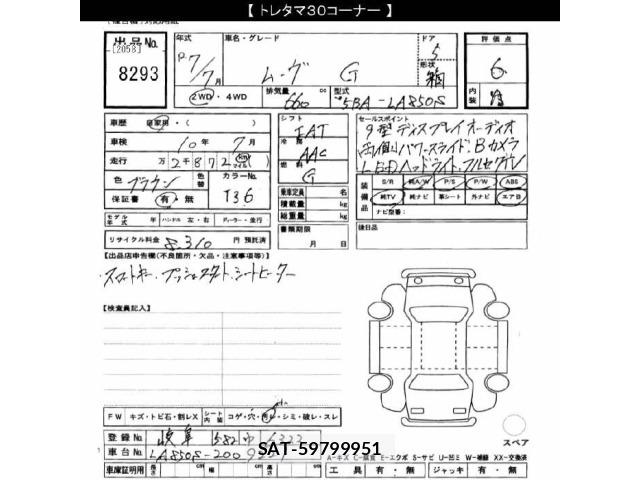 【 トレタマ30コーナー 】
出品No.
[2058]
8293
年式
R7/7月
車名・グレード
ムーヴ G
ドア
5
形状
箱
評価点
6
内装
2WD・4WD
排気量
660 cc
型式
5BA-LA850S
車歴 自家用・( )
車検 10年 7月
走行 万2千8百7 km マイル
色 ブラウン
色替
カラーNo.
T36
保証書 有・無
モデル年式 年 ハンドル 左・右 ディーラー・並行
リサイクル料金 8,310 円 預託済
シフト
IAT
冷房
AAC
燃料
G
乗車定員 名
積載量 kg
総重量 kg
書類期限
月 日
セールスポイント
9型ディスプレイオーディオ
両側パワースライド、Bカメラ
LEDヘッドライト、フルセグTV
装備品
S/R 純A/W P/S P/W ABS
純TV 純ナビ 革シート 外ナビ エアB
ナビ型番:
後日品
【出品店申告欄(不良箇所・欠品・注意事項等)】
スマートキー、プッシュスタート、シートヒーター
【検査員記入】
FW キズ・トビ石・割レX シート内装 コゲ・穴・汚レ・シミ・破レ・スレ
登録No. 岐阜 582
車台No. LA850S-200
SAT-59799951
スペア
A-キズ
E-エクボ S-サビ U-凹ミ W-補修 XX-交換済
車庫証明用 長さ cm 幅 cm 高さ cm
工具 有・無 ジャッキ 有・無